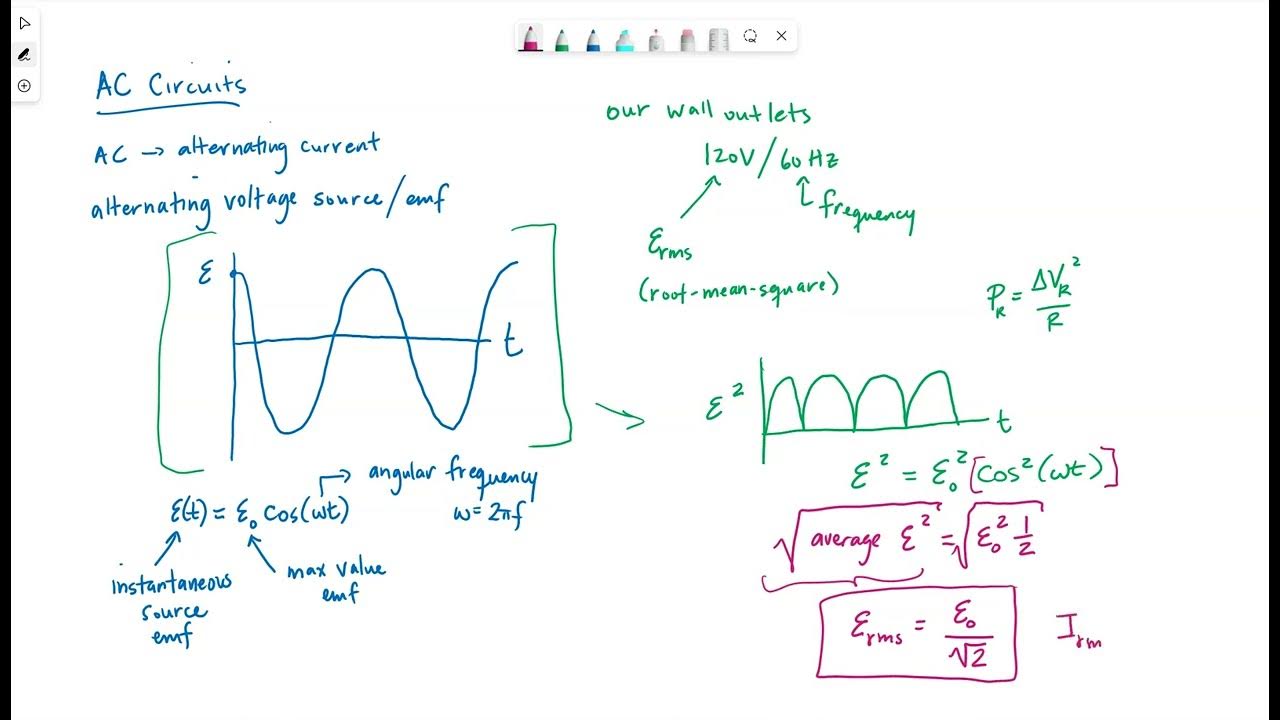 AC Circuits
AC → alternating current
alternating voltage source/emf
ε
t
ε(t) = ε₀ cos(ωt)
angular frequency
ω = 2πf
instantaneous
source
emf
max value
emf
our wall outlets
120V/60Hz
frequency
εrms
(root-mean-square)
P_R = ΔV_R² / R
ε²
t
ε² = ε₀² [cos²(ωt)]
√(average ε²) = √(ε₀² 1/2)
εrms = ε₀/√2
I_rm